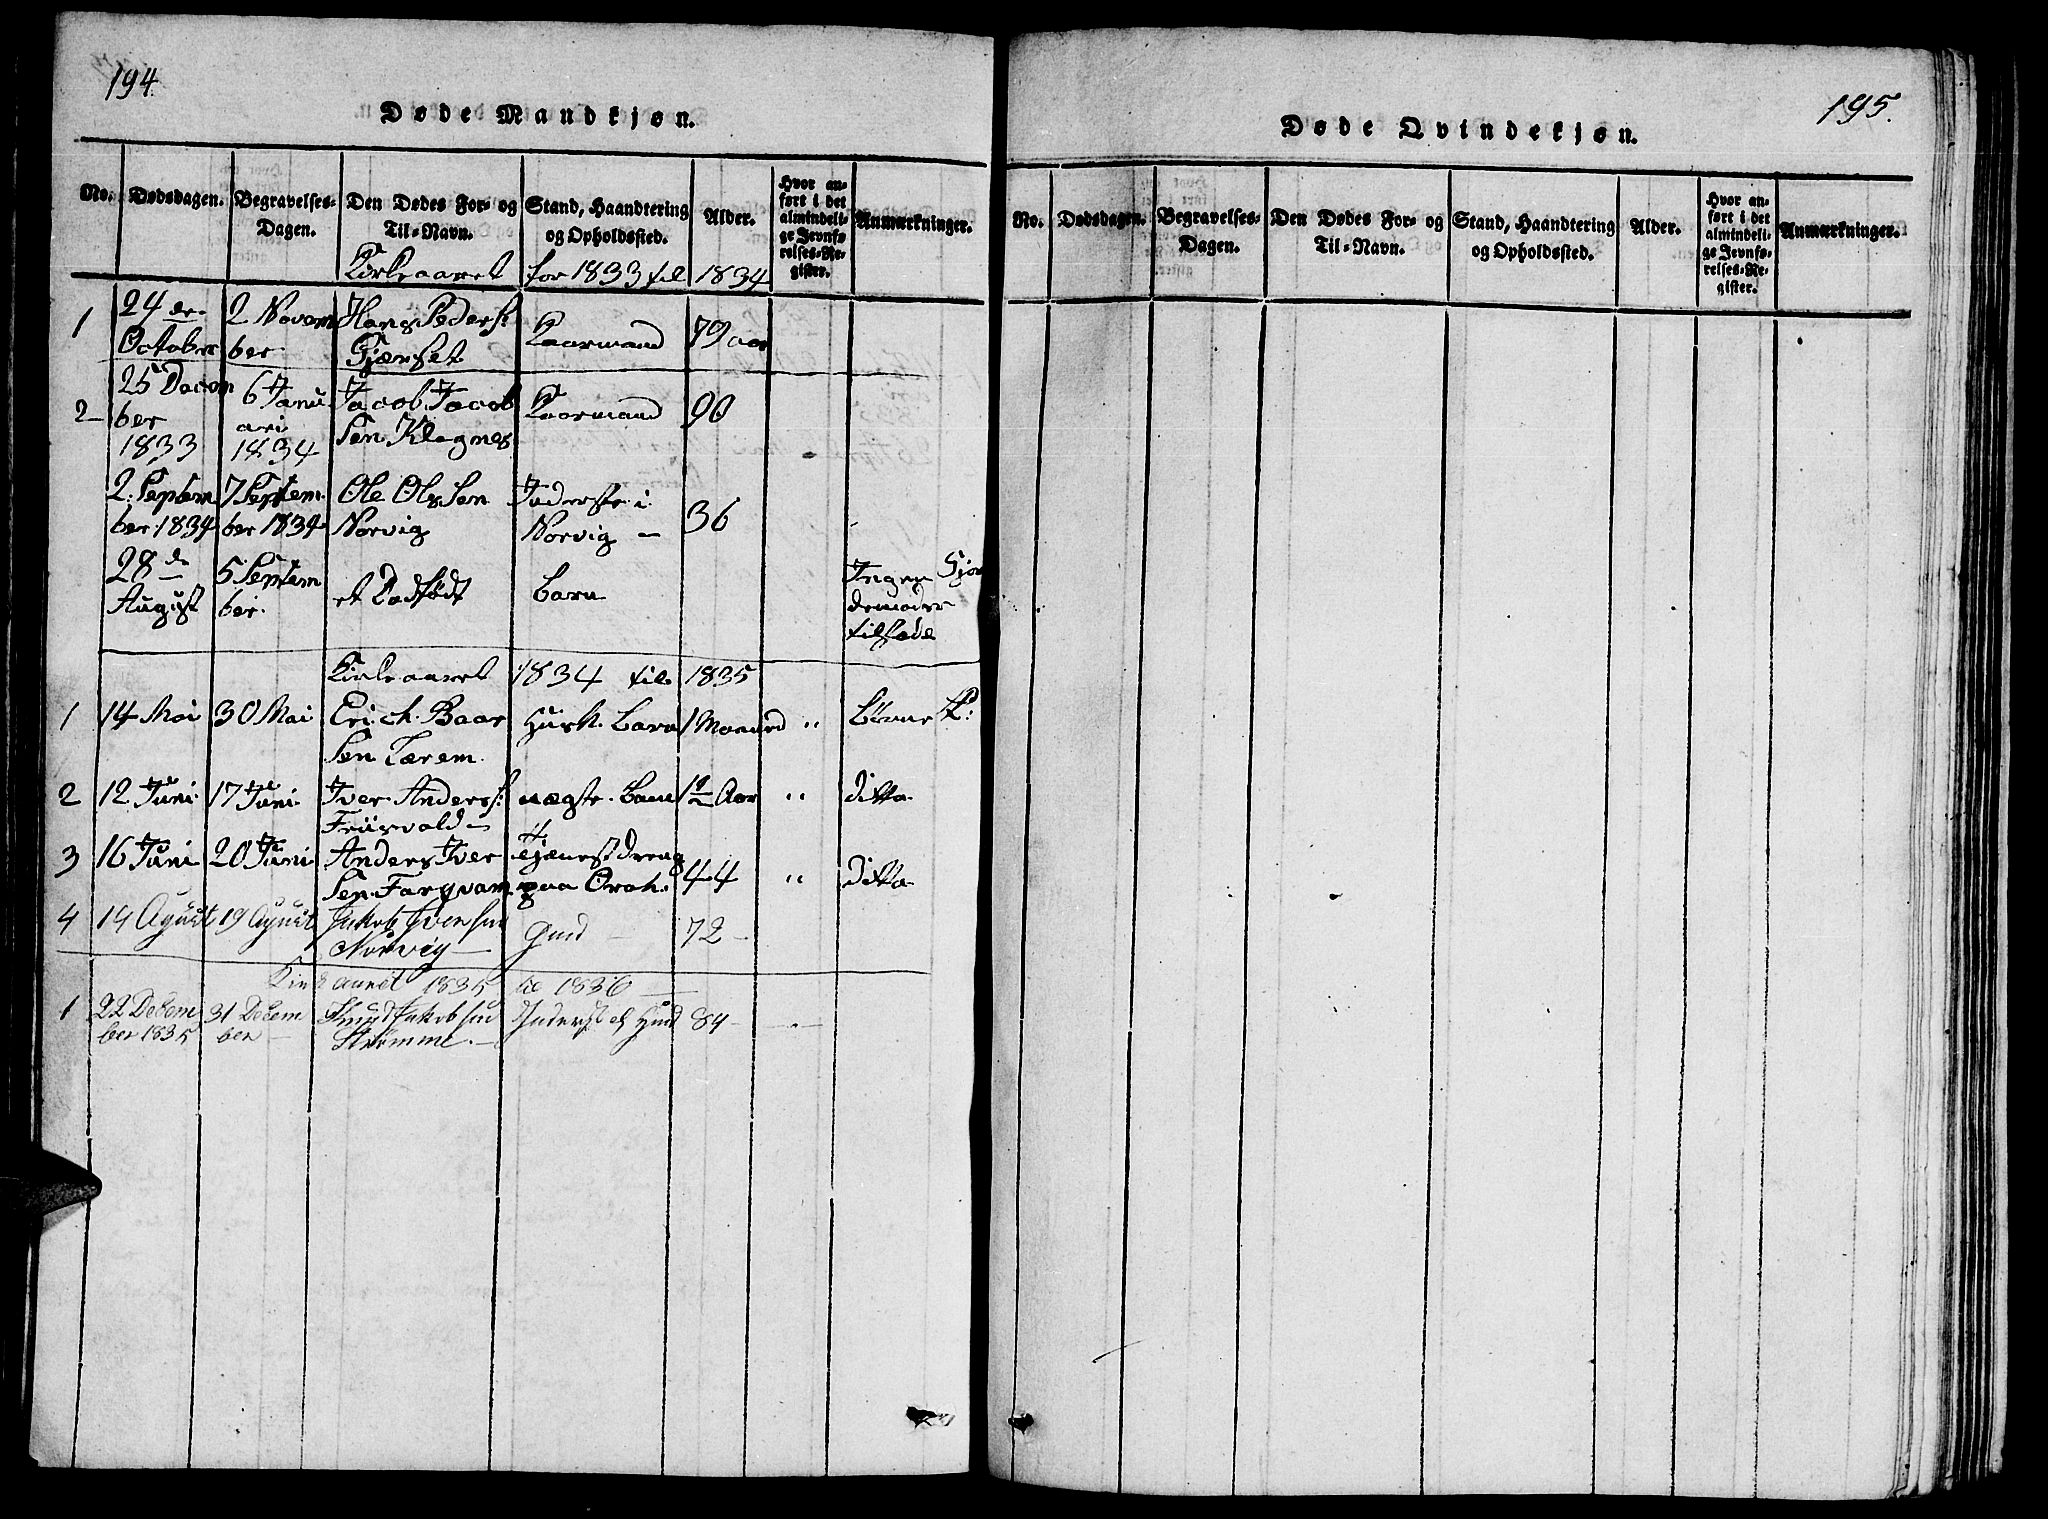 194.
Døde Mandkjøn.
No.
Dødsdagen.
Begravelses-
Dagen.
Den Dødes For- og
Til-Navn.
Stand, Haandtering
og Opholdssted.
Alder.
Hvor an-
ført i det
almindeli-
ge Jevnfø-
relses-Re-
gister.
Anmærkninger.
Kirkeaaret for 1833 til 1834
1
24 de
October
2 Novem
ber
Hans Peders:
Gjærset
Kaarmand
79 aar
2
25 Decem
ber
1833
6 Janu
ari
1834
Jacob Jacob
Sen Klegnes
Kaarmand
90
2: Septem
ber 1834
7 Septem
ber 1834
Ole Ols Sen
Norvig
Inderste i
Norvig
36
28 de
August
5 Septem
ber.
et Dødfødt
Barn
Ingen Gjor
demoder
tilstæde
Kirkeaaret 1834 til 1835
1
14 Mai
30 Mai
Erich Baar
Sen Lærem
Husm. Barn
1 Maaned
"
Børne K:
2
12 Juni
17 Juni
Iver Anders:
Friisvold
Barn
1 1/2 Aar
"
ditto
3
16 Juni
20 Juni
Anders Iver
Sen
Tjænestdreng
paa
44
"
ditto
4
14 Agust
19 Agust
Jakob Iversen
Norvig
72
Kirkeaaret 1835 til 1836
1
22 Decem
ber 1835
31 Decem
ber
Knud Jakobsen
Strømme.
Inderst
84
195.
Døde Qvindekjøn.
No.
Dødsdagen.
Begravelses-
Dagen.
Den Dødes For- og
Til-Navn.
Stand, Haandtering
og Opholdssted.
Alder.
Hvor an-
ført i det
almindeli-
ge Jevnfø-
relses-Re-
gister.
Anmærkninger.